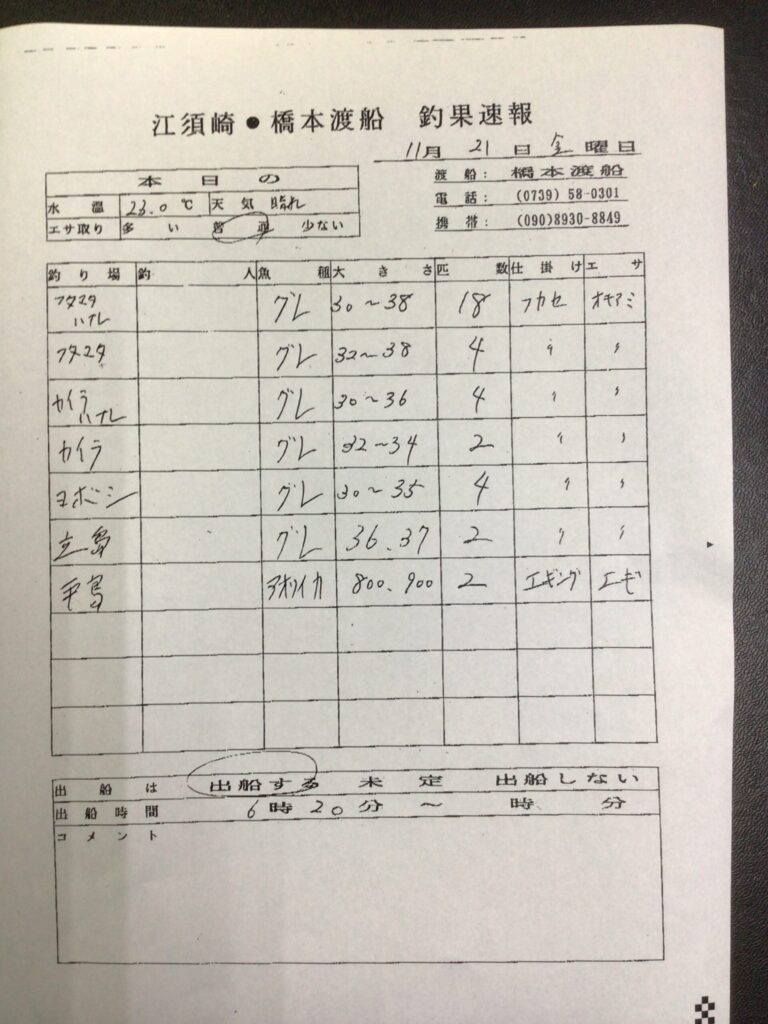 江須崎●橋本渡船 釣果速報
11月 21日 金曜日
渡船: 橋本渡船
電話: (0739) 58-0301
携帯: (090)8930-8849
本日の
水温 23.0℃ 天気 晴れ
エサ取り 多い 普通 少ない
釣り場 釣人 魚種 大きさ 匹数 仕掛け エサ
フタマタハナレ グレ 30～38 18 フカセ オキアミ
フタマタ グレ 32～38 4 〃 〃
カイラハナレ グレ 30～36 4 〃 〃
カイラ グレ 32～34 2 〃 〃
ヨボシ グレ 30～35 4 〃 〃
立島 グレ 36.37 2 〃 〃
平島 アオリイカ 800.900 2 エギング エギ
出船は 出船する 未定 出船しない
出船時間 6時20分～ 時 分
コメント